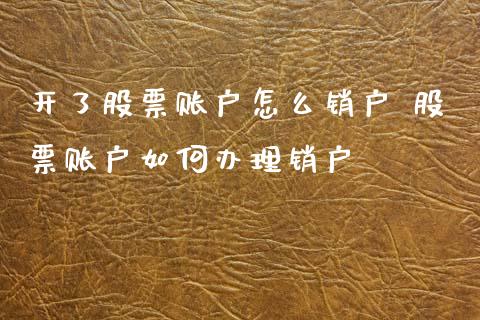 开了股票账户怎么销户 股
票账户如何办理销户